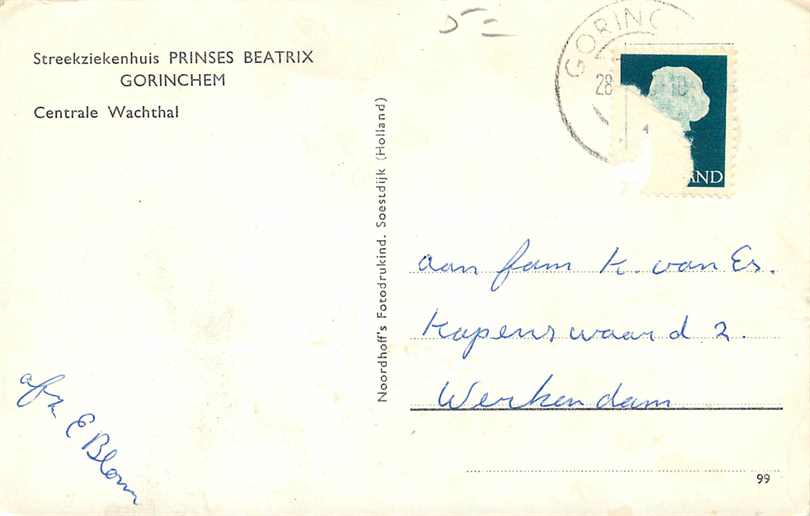 Streekziekenhuis PRINSES BEATRIX
GORINCHEM
Centrale Wachthal
Noordhoff's Fotodrukind. Soestdijk (Holland)
GORINC
28
AND
aan fam K. van Es.
Kopenswaard 2.
Werkendam
afz E Blom
99